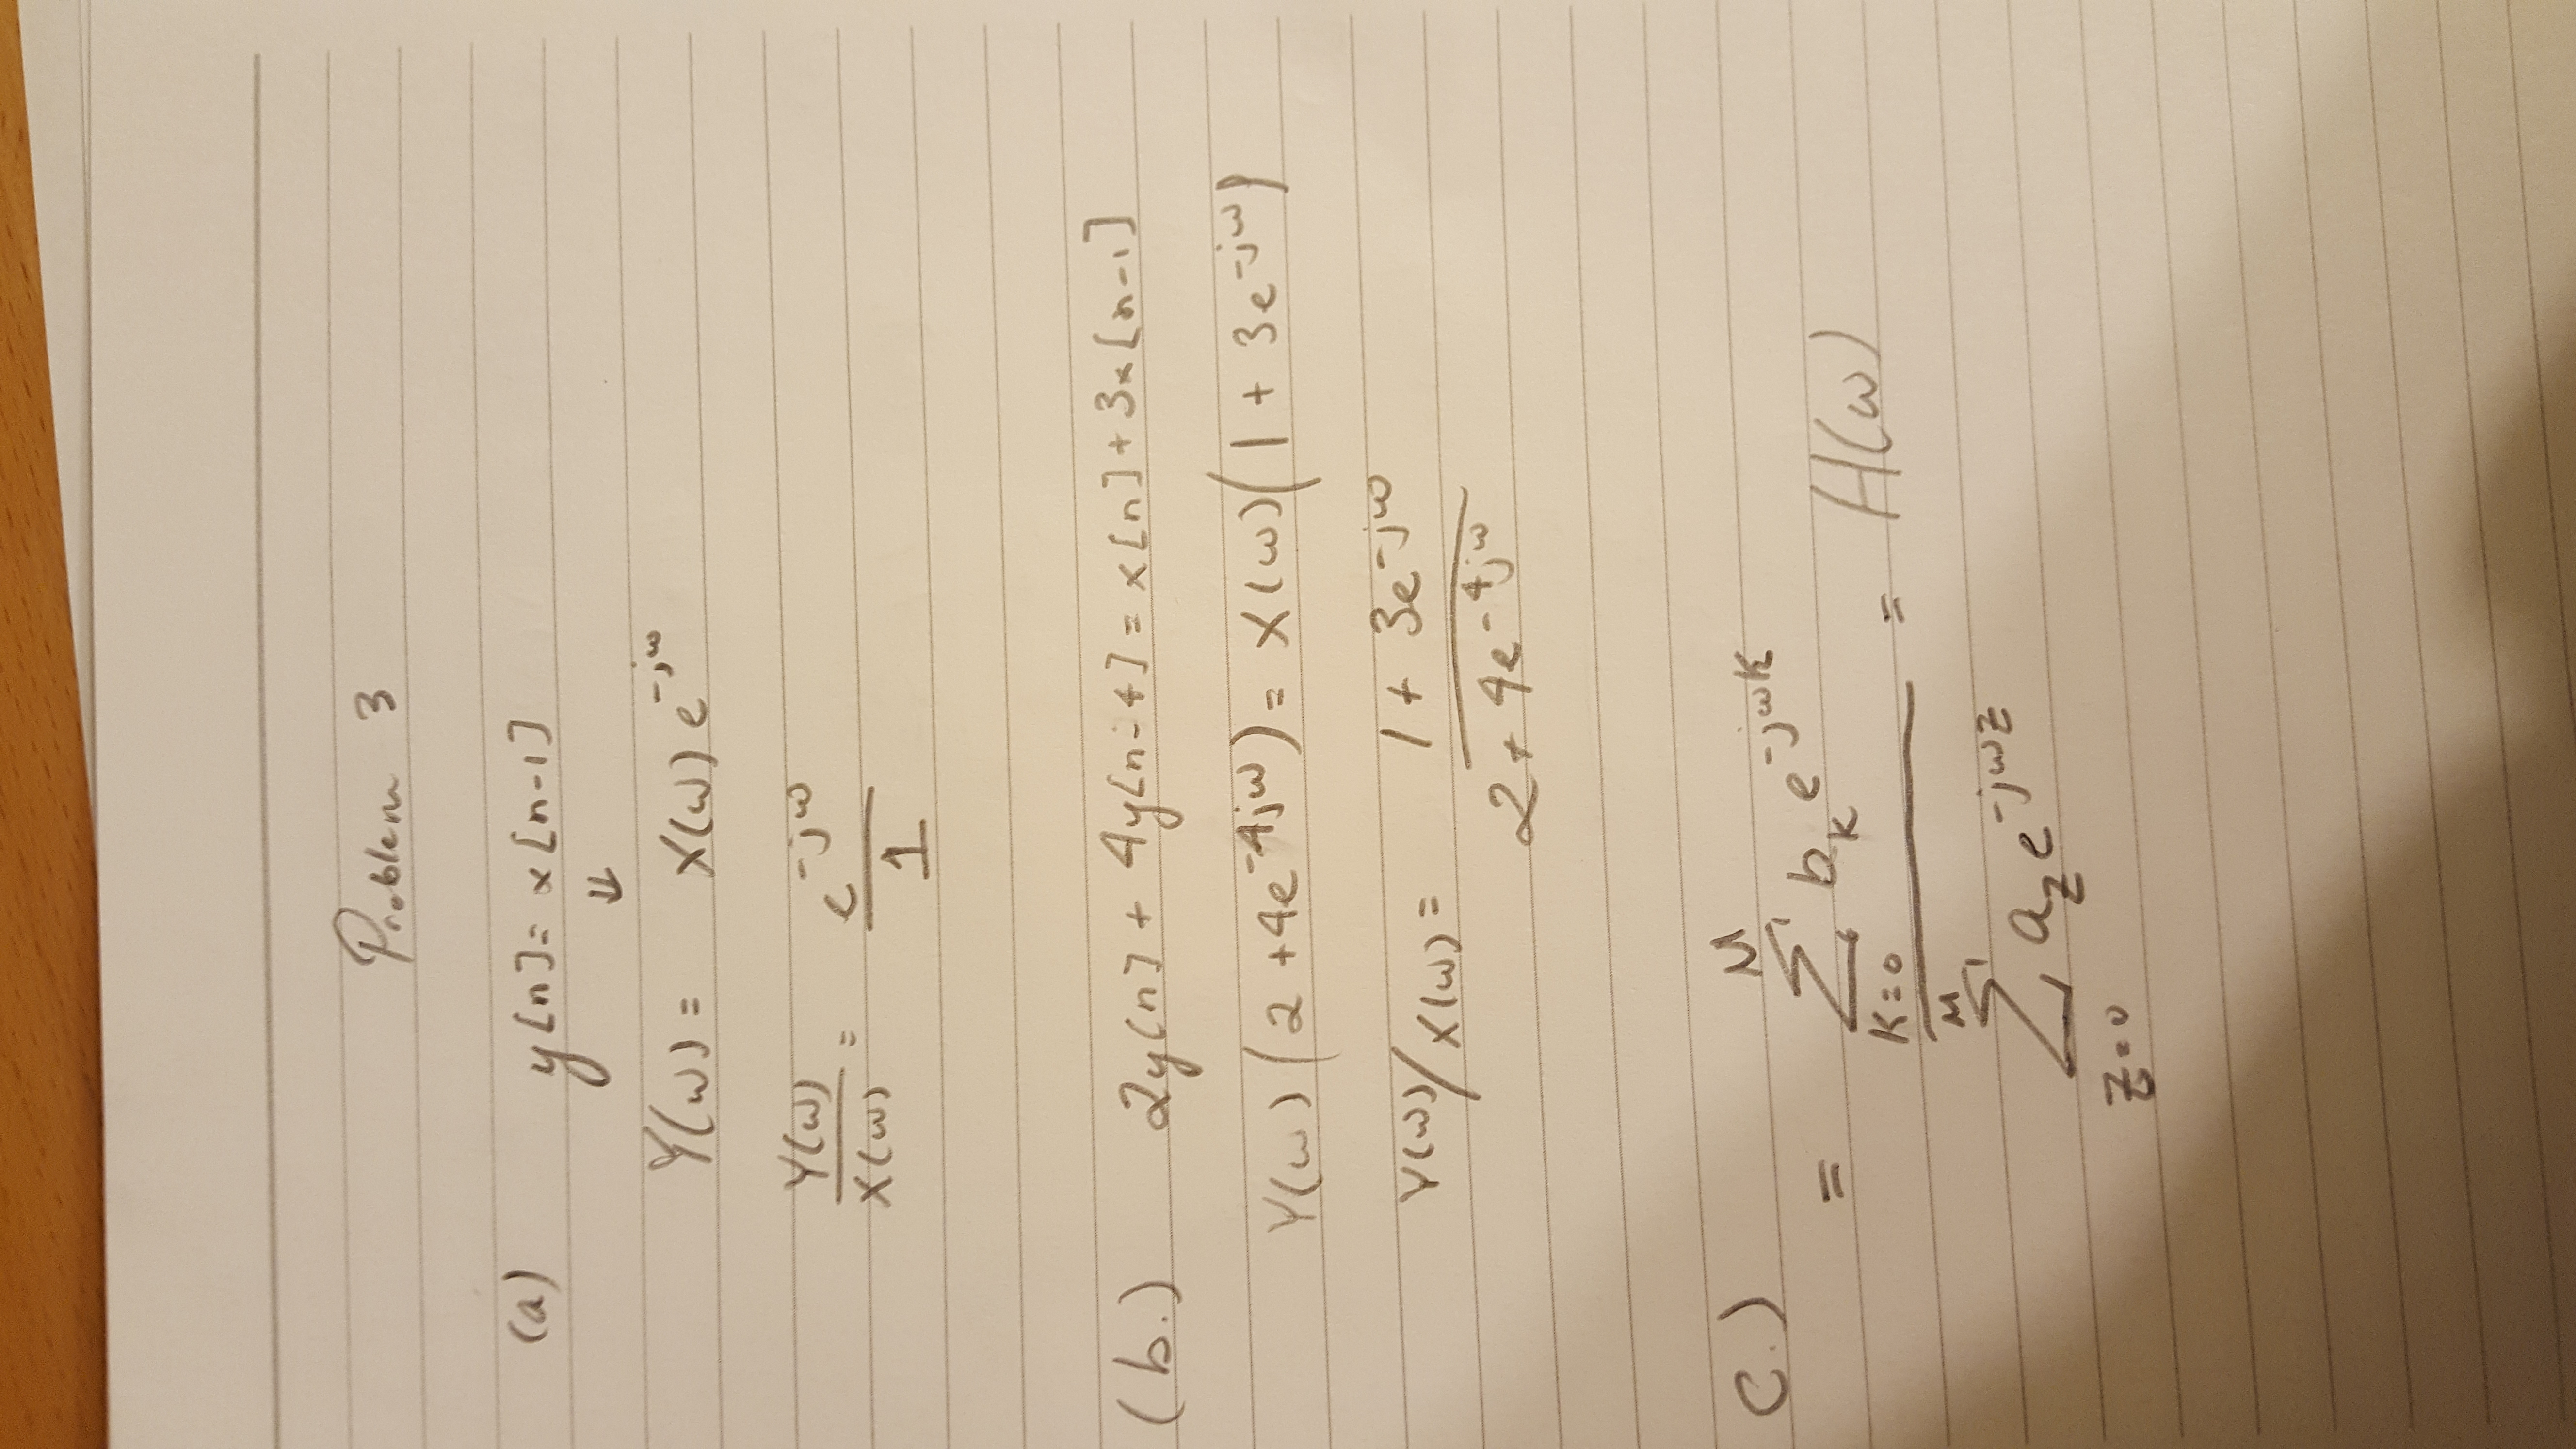 Problem 3
(a) y[n] = x[n-1]
⇓
Y(ω) = X(ω) e^{-jω}
Y(ω)/X(ω) = e^{-jω}/1
(b.) 2y[n] + 4y[n-4] = x[n] + 3x[n-1]
Y(ω)(2 + 4e^{-4jω}) = X(ω)(1 + 3e^{-jω})
Y(ω)/X(ω) = (1 + 3e^{-jω})/(2 + 4e^{-4jω})
C.) = (∑_{K=0}^{M} b_K e^{-jωK})/(∑_{Z=0}^{M} a_Z e^{-jωZ}) = H(ω)